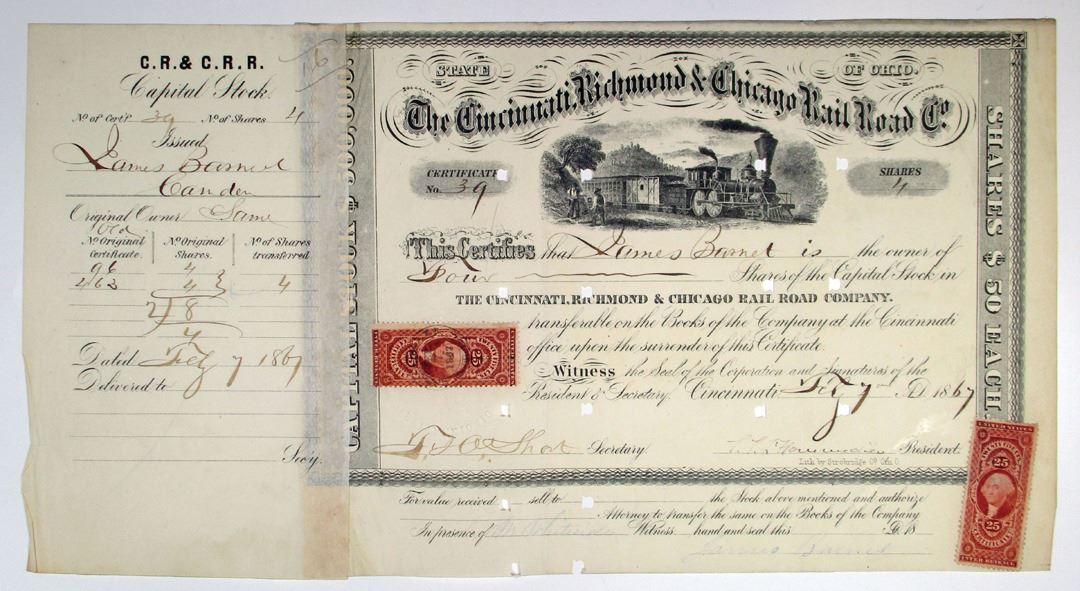 C.R. & C.R.R.
Capital Stock.
No of Cert. 39 No of Shares 4
Issued
James Barnet
Camden
Original Owner Same
Old
No Original Certificate. No Original Shares. No of Shares transferred
96 4
463 4 4
2)8
4
Dated Feby 7 1867
Delivered to
Sec'y.
16
CAPITAL STOCK $
STATE OF OHIO.
The Cincinnati, Richmond & Chicago Rail Road Co.
CERTIFICATE No. 39
SHARES 4
This Certifies that James Barnet is the owner of
Four Shares of the Capital Stock in
THE CINCINNATI, RICHMOND & CHICAGO RAIL ROAD COMPANY.
transferable on the Books of the Company at the Cincinnati
office upon the surrender of this Certificate.
Witness the Seal of the Corporation and Signatures of the
President & Secretary. Cincinnati Feby 7 AD. 1867
Secretary. President.
Lith. by Strobridge & Co. Cin. O.
SHARES $50 EACH.
For value received sell to the Stock above mentioned and authorize
Attorney to transfer the same on the Books of the Company
In presence of Witness hand and seal this 18
James Barnet
25
25
UNITED STATES
25
25
CERTIFICATE
INTER. REVENUE